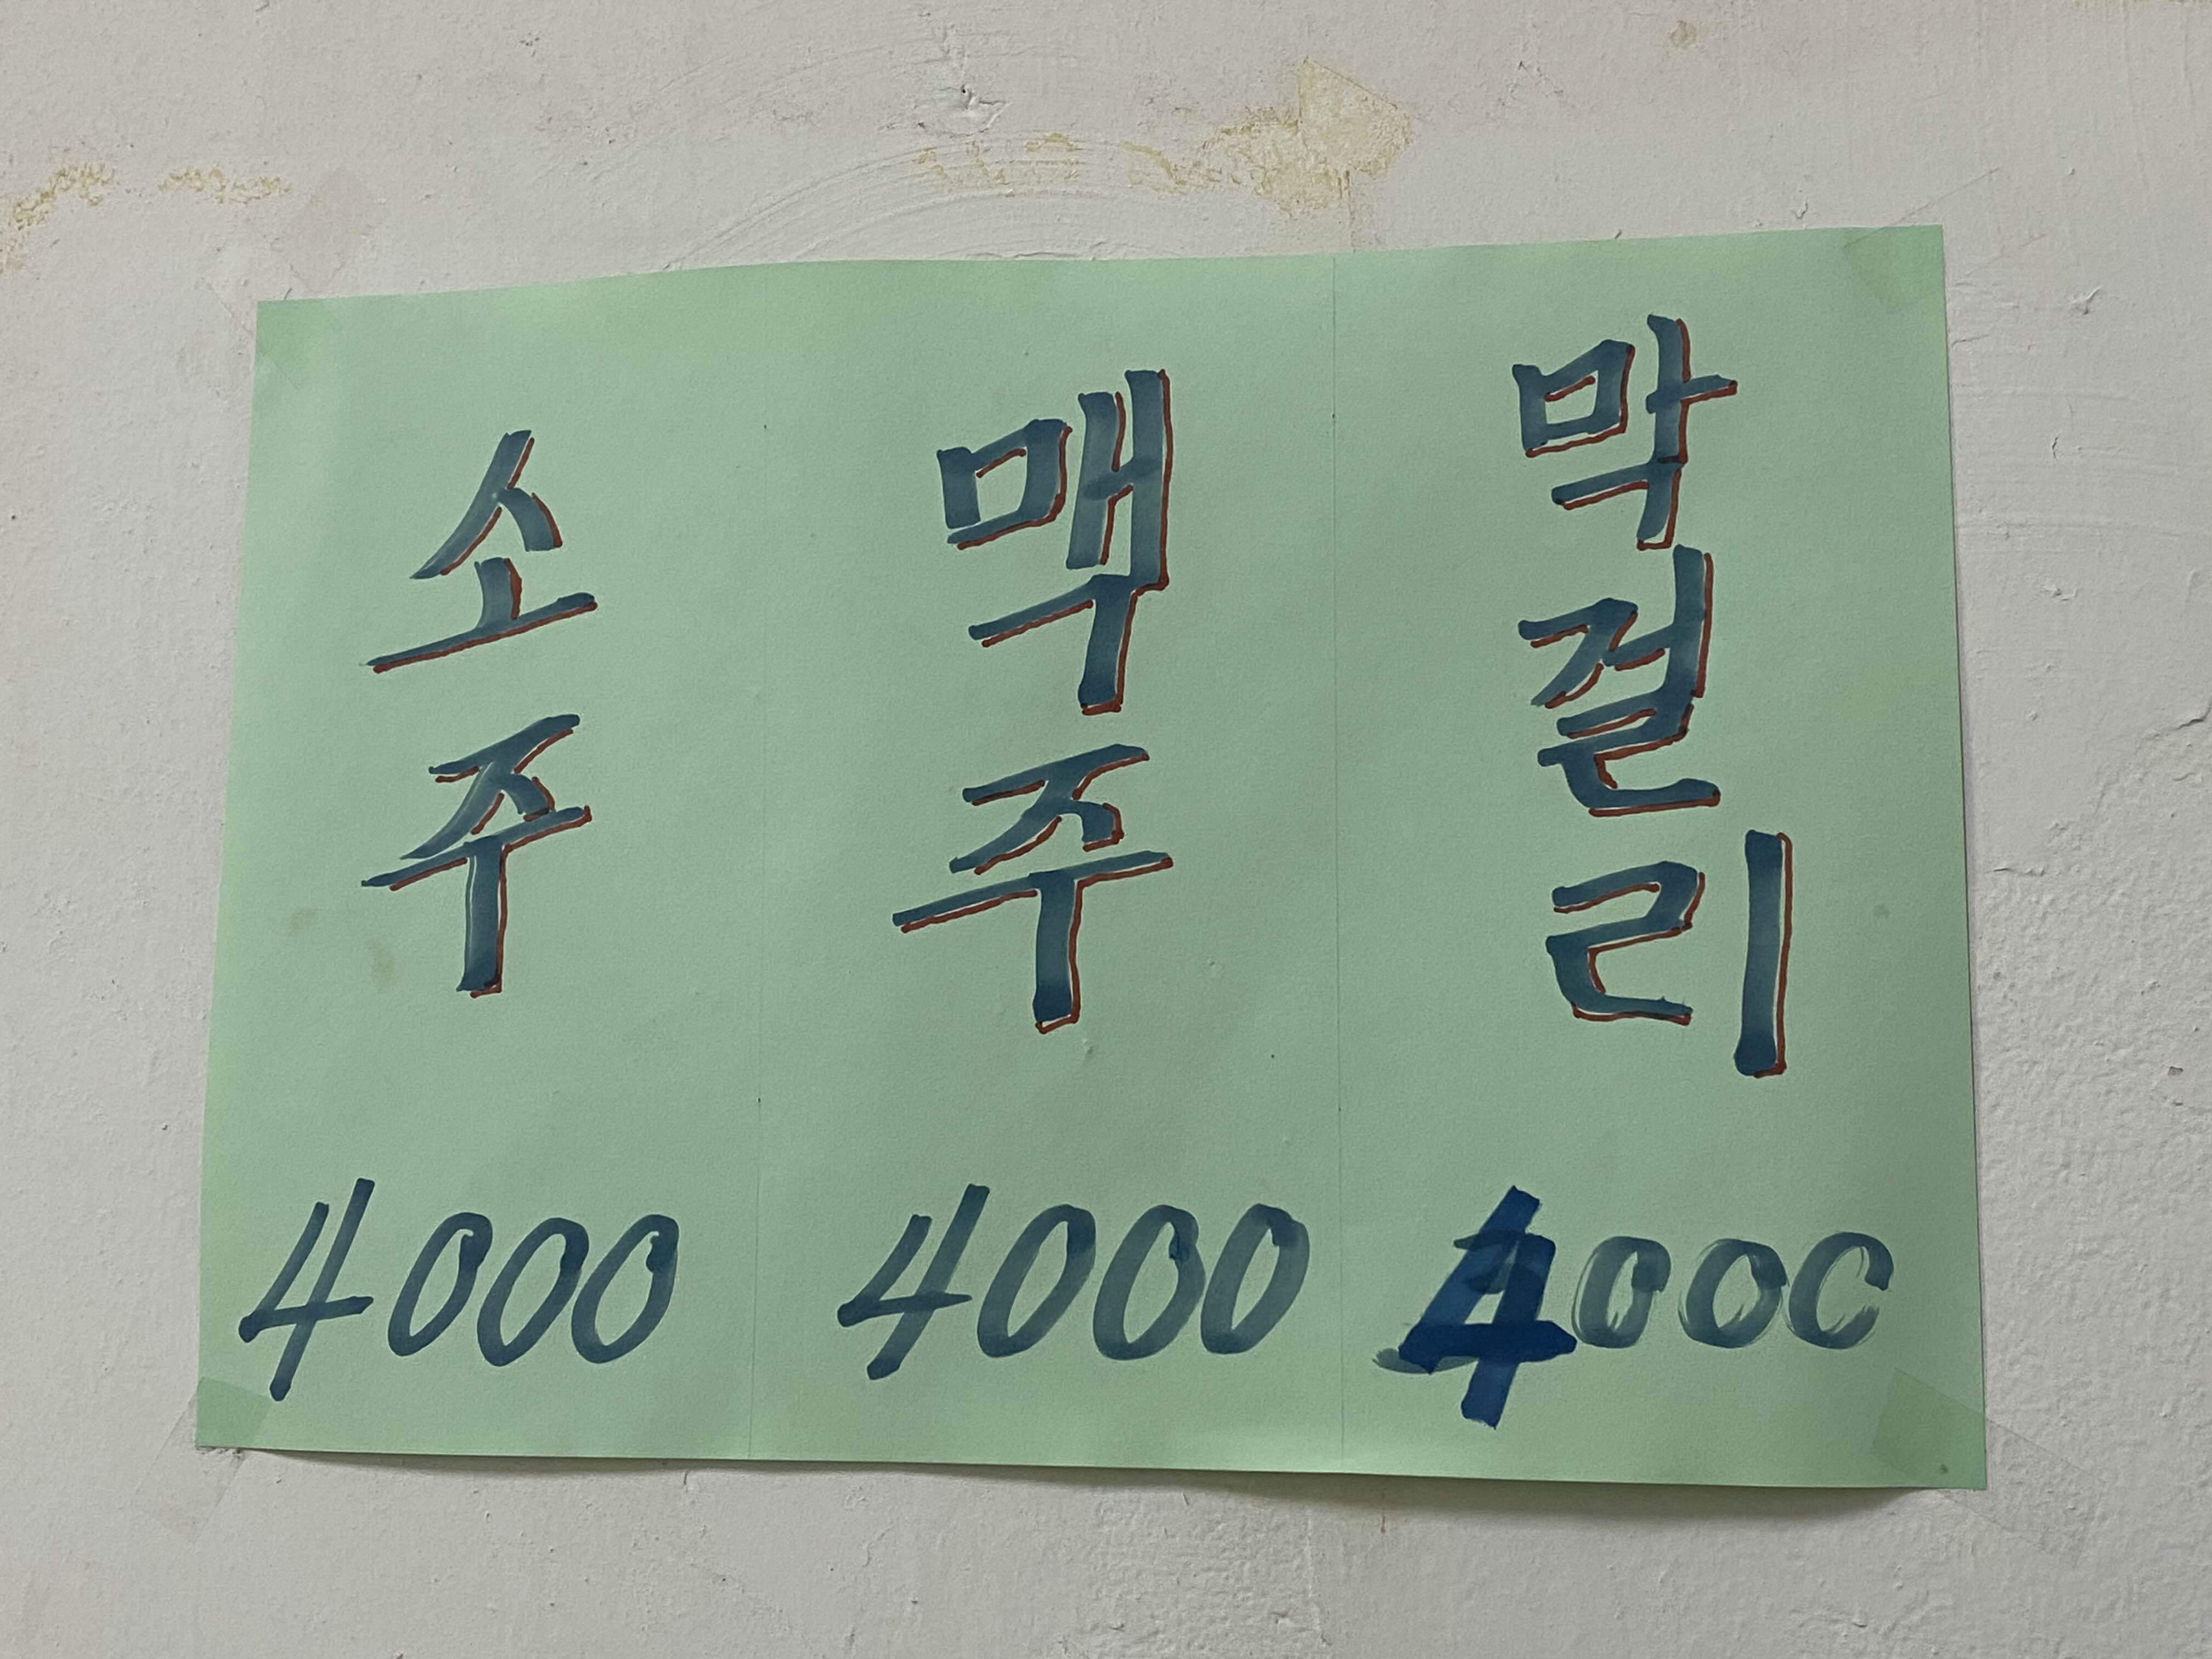 소주
맥주
막걸리
4000
4000
4000